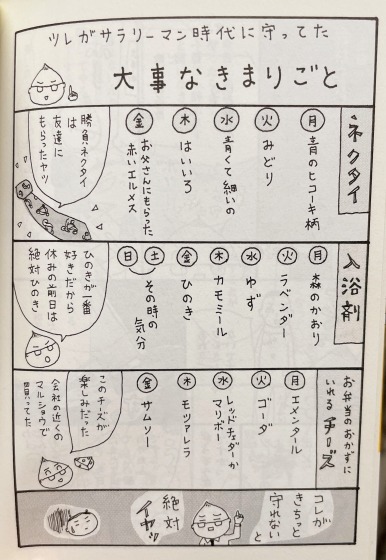 ツレがサラリーマン時代に守ってた
大事なきまりごと
ネクタイ
月
青のヒコーキ柄
火
みどり
水
青くて細いの
木
はいいろ
金
お父さんにもらった
赤いエルメス
勝負ネクタイ
は
友達に
もらったヤツ
入浴剤
月
森のかおり
火
ラベンダー
水
ゆず
木
カモミール
金
ひのき
土
日
その時の
気分
ひのきが一番
好きだから
休みの前日は
絶対ひのき
お弁当のおかずに
いれるチーズ
月
エメンタール
火
ゴーダ
水
レッドチェダーか
マリボー
木
モッツァレラ
金
サムソー
このチーズが
楽しみだった
会社の近くの
マルショウで
買ってた
コレが
きちっと
守れないと
絶対
イヤッ